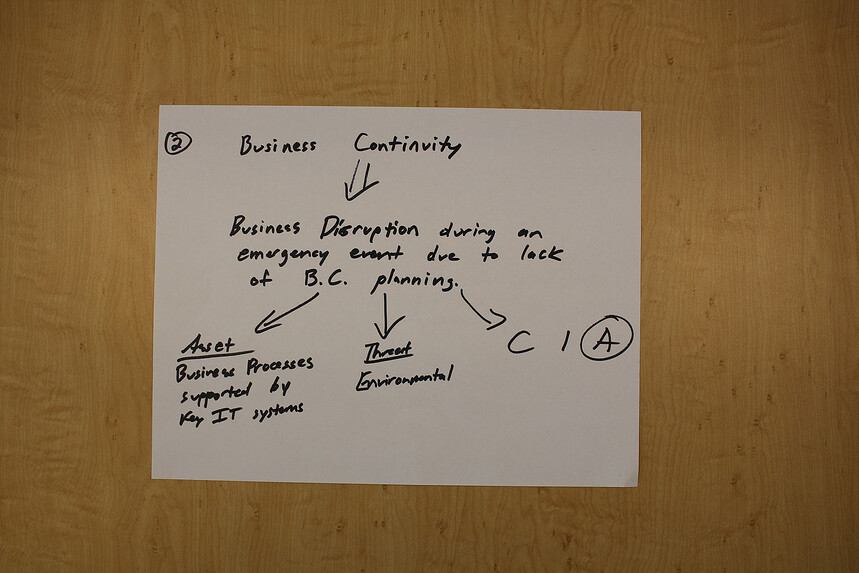 2
Business Continuity
Business Disruption during an
emergency event due to lack
of B.C. planning.
Asset
Business Processes
supported by
Key IT systems
Threat
Environmental
C I A